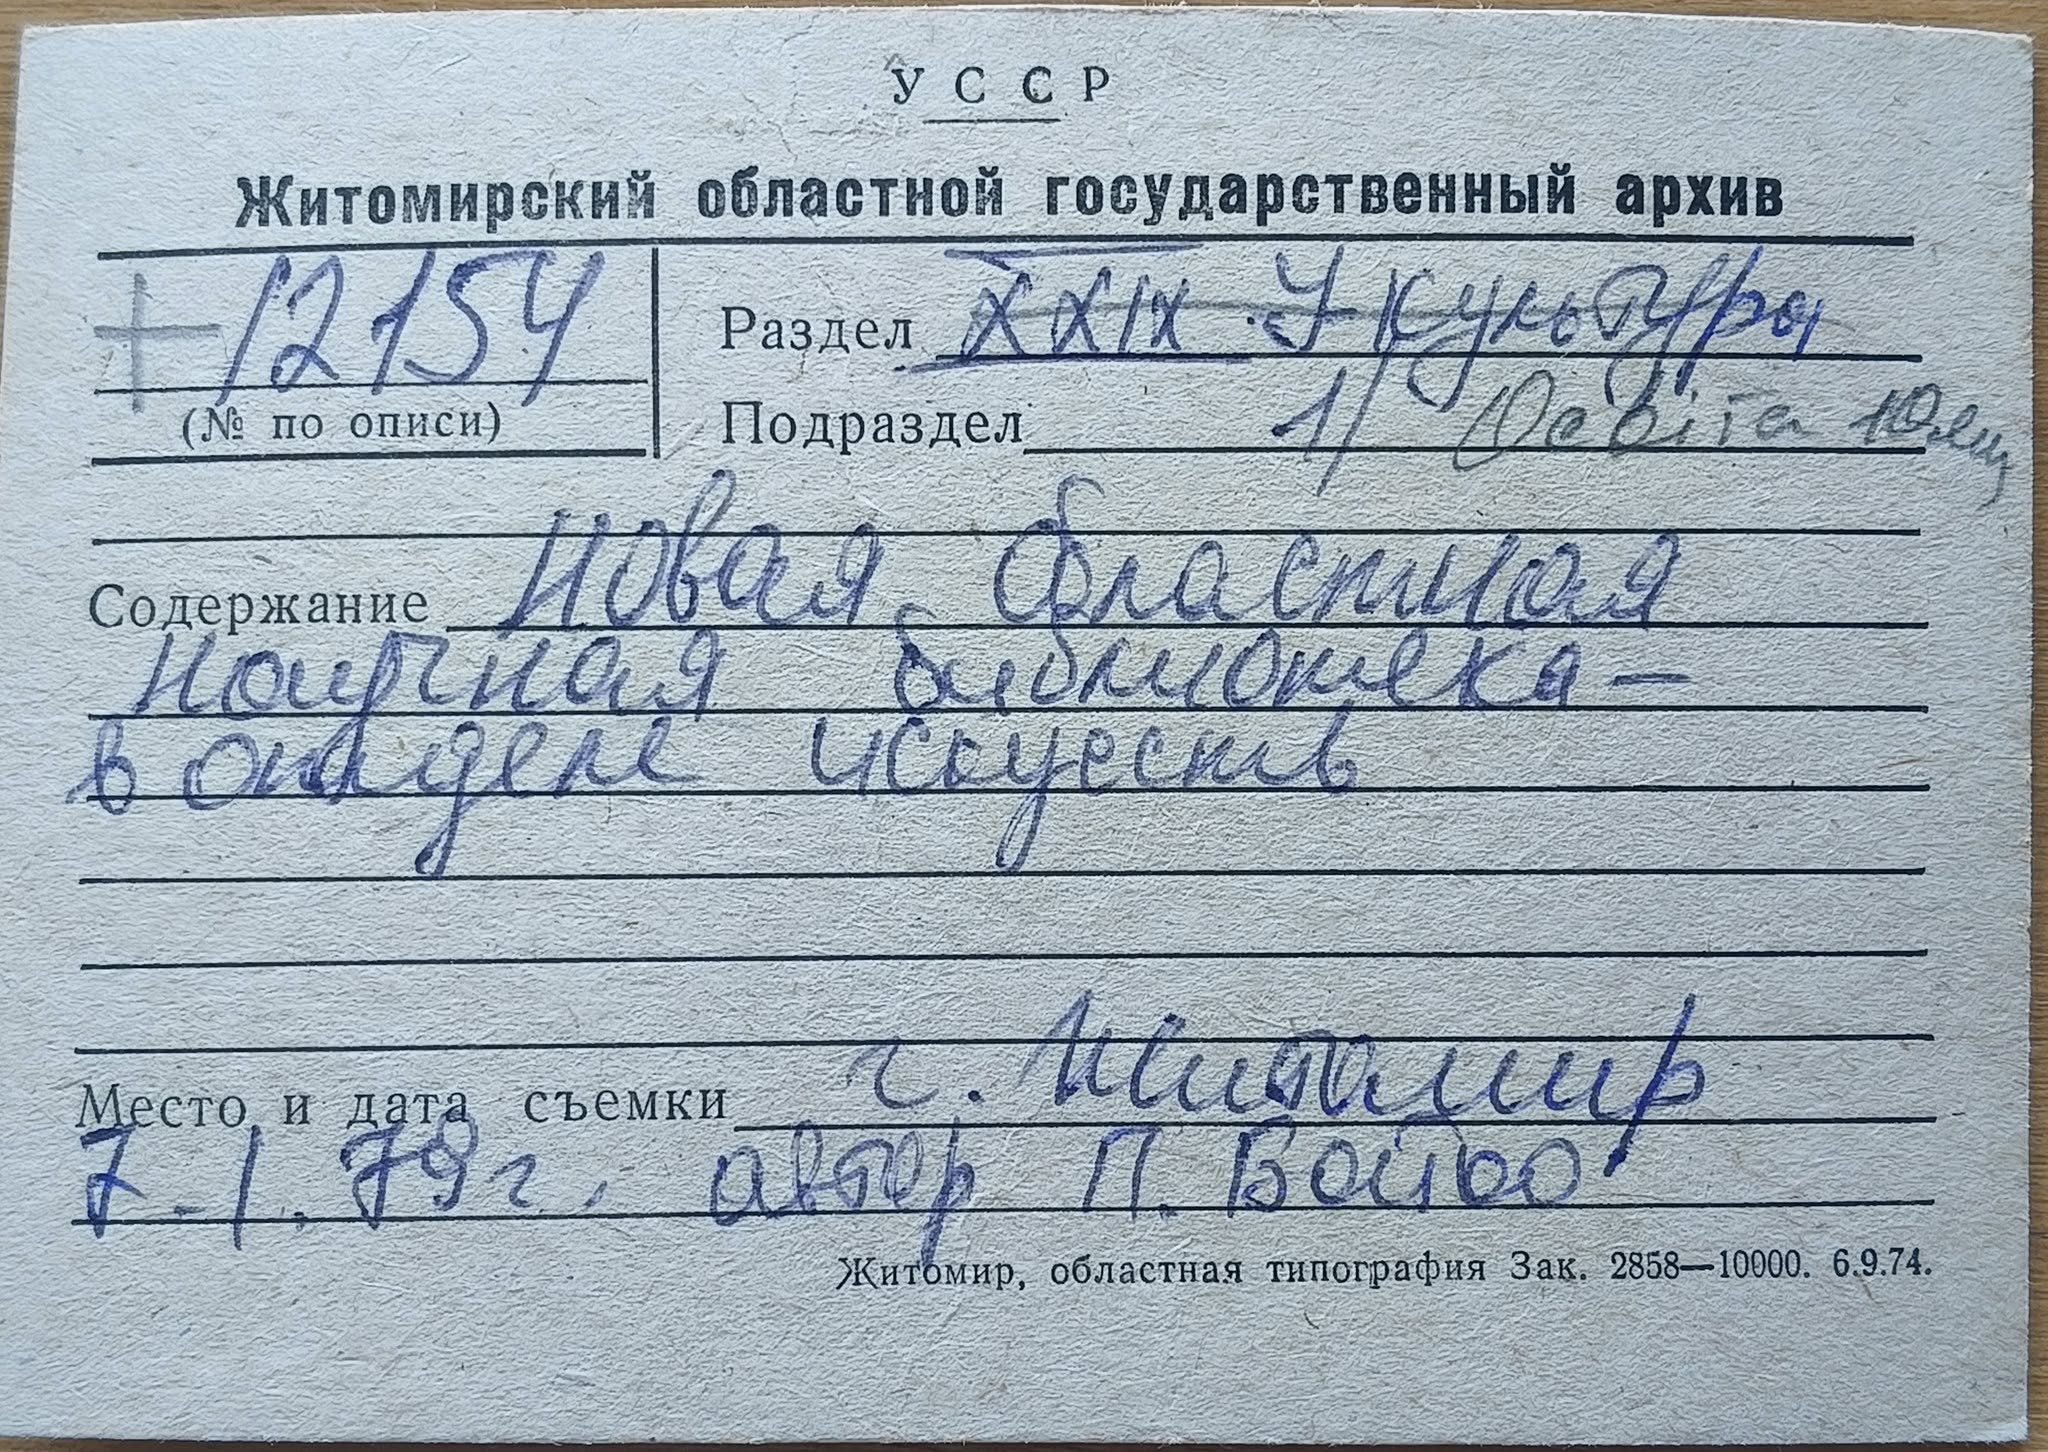 УССР
Житомирский областной государственный архив
+ 12154
(№ по описи)
Раздел XXIX. Укультуры
Подраздел 1/ Освіта
Содержание Новая областная
научная библиотека –
в отделе искуств
Место и дата съемки г. Житомир
7.1.79 г. автор П. Бойко
Житомир, областная типография Зак. 2858—10000. 6.9.74.